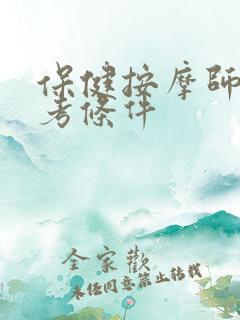 保健按摩師
考條件
全家歡
未經同意禁止轉載